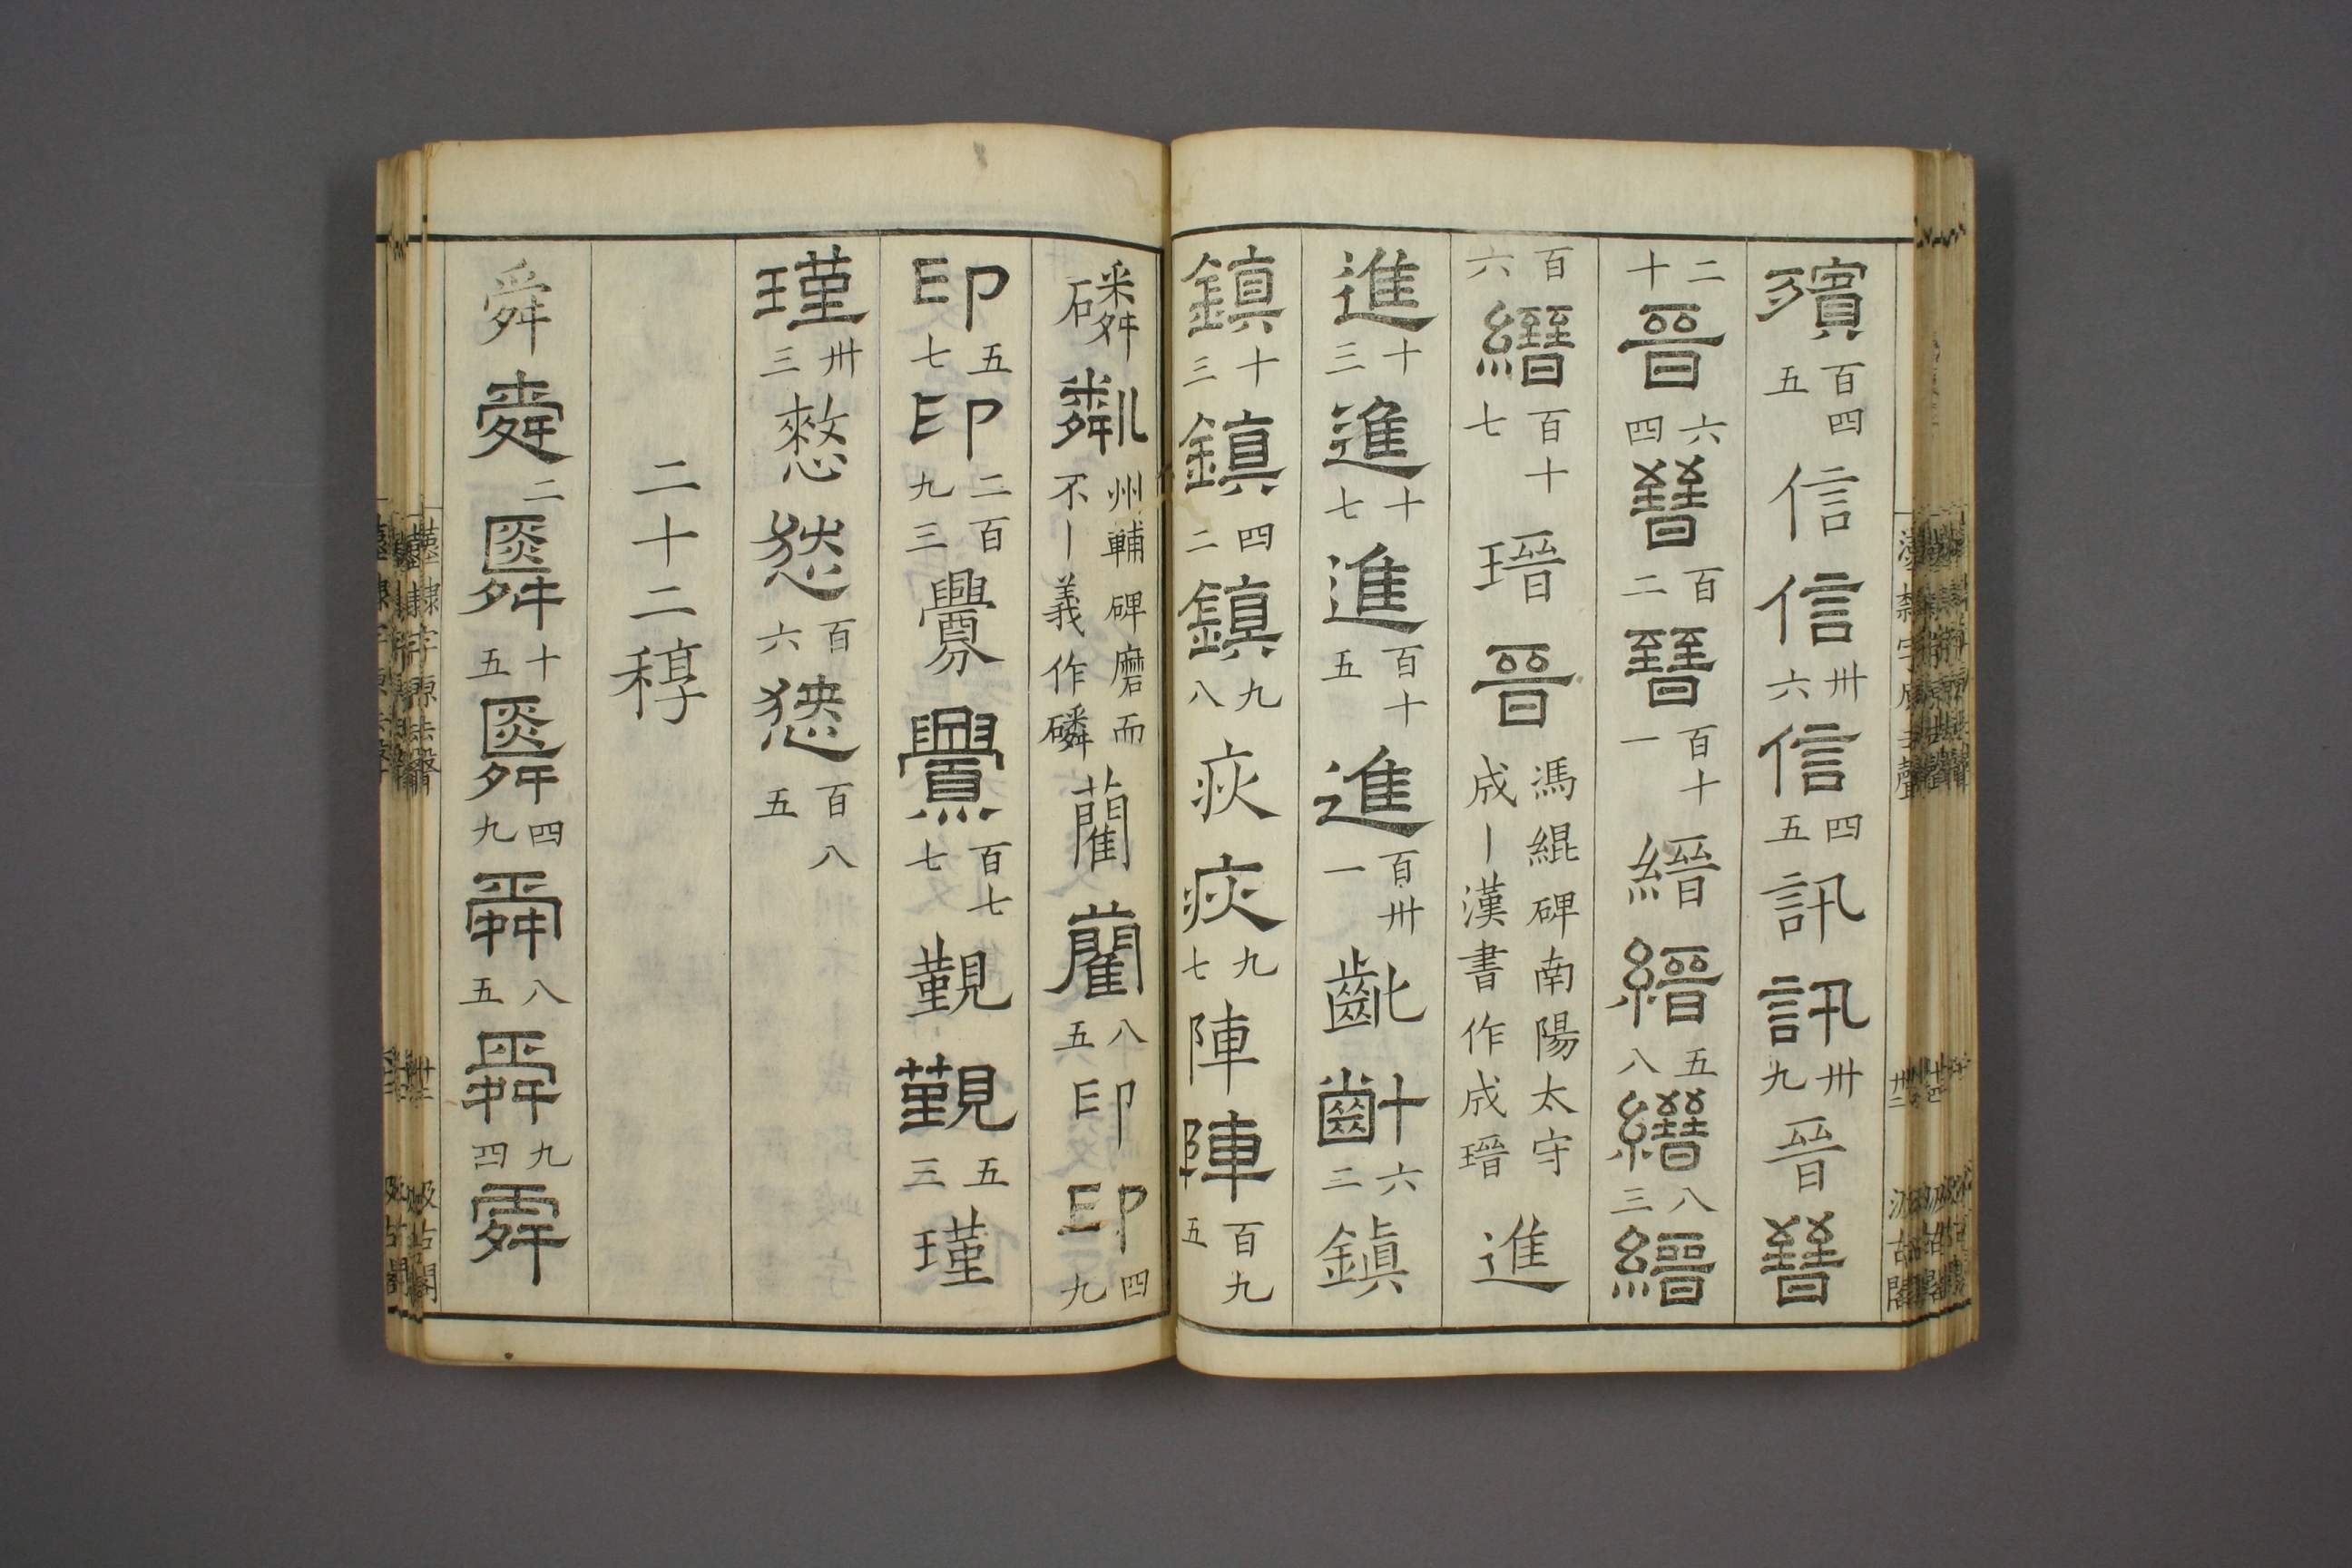 殯五百四信信六卅信五四訊訊九卅晉晉
十二晉四六晉二百晉一百十縉縉八五縉三八縉
六百縉七百十瑨晉馮緄碑南陽太守成丨漢書作成瑨進
進三十進七十進五百十進一百卅齔齔二六鎮
鎮三十鎮二四鎮八九疢疢七九陣陣五百九
磷粼州輔碑磨而不丨義作磷藺藺五八印印九四
印七五印九三二百釁釁七百七覲覲三五瑾
瑾三卅憖憖六百憖五百八
二十二稕
舜舜二舜五十舜九四舜五八舜四九舜
漢隸字原去聲
卅二
汲古閣